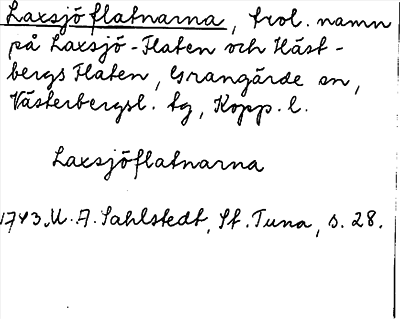 Laxsjöflatnarna, trol. namn
på Laxsjö-Flaten och Häst-
bergs Flaten, Grangärde sn,
Västerbergsl. tg, Kopp. l.
Laxsjöflatnarna
1743. M. A. Sahlstedt, St. Tuna, s. 28.